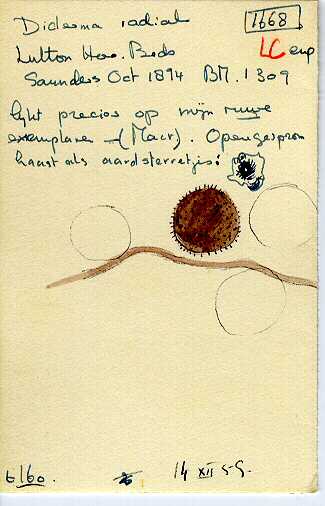 Diderma radial 1668
Lutton Hoo. Beds LC exp
Saunders Oct 1894 BM. 1309
lijkt precies op mijn ruwe
exemplaren (Macr). Opengesprongen
haast als aardsterretjes:
6/60. 14 XII 59.